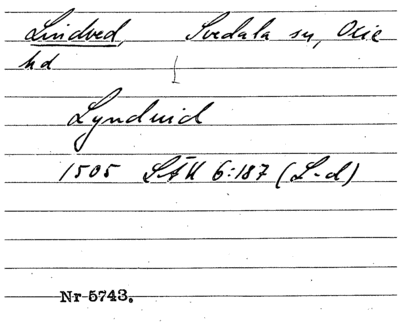 Lindved, Svedala sn, Oxie
hd
Lynduid
1505 SÄU 6:187 (L-d)
Nr 5743.